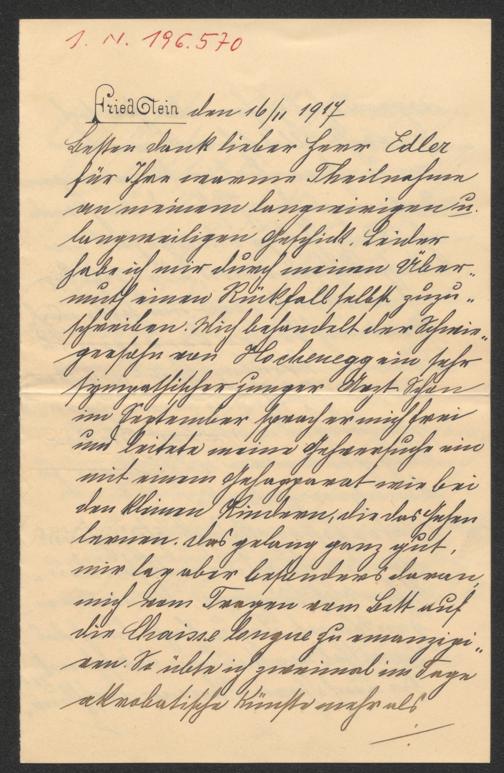 J. N. 196.570
FriedStein den 16/II 1917
Besten Dank lieber Herr Edler
für Ihre warme Theilnahme
an meinem langwierigen u.
langweiligen Geschick. Leider
habe ich mir durch meinen Über-
muth einen Rückfall selbst zuzu-
schreiben. Mich behandelt der Schwie-
gersohn von Hochenegg ein sehr
sympathischer junger Arzt. Schon
im September sprach er mich frei
und leitete meine Gehversuche ein
mit einem Gehapparat wie bei
den kleinen Kindern, die das Gehen
lernen. Das gelang ganz gut,
mir lag aber besonders daran,
mich vom Tragen vom Bett auf
die Chaise longue zu emanzipi-
ren. So übte ich zweimal im Tage
akrobatische Künste mehr als